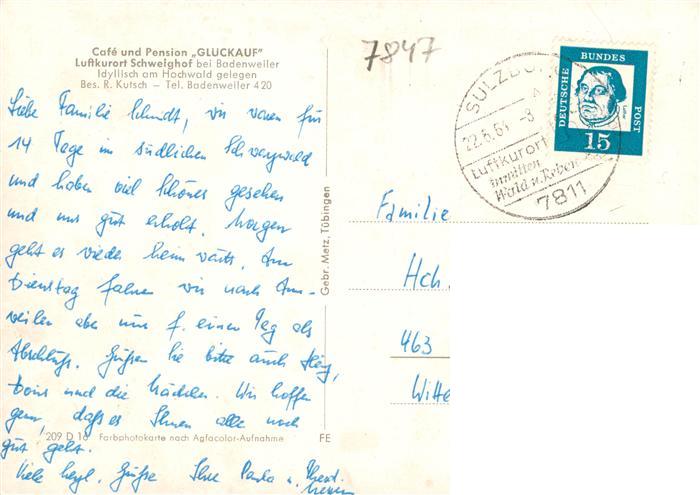 Café und Pension „GLUCKAUF"
Luftkurort Schweighof bei Badenweiler
Idyllisch am Hochwald gelegen
Bes. R. Kutsch – Tel. Badenweiler 420
7847
DEUTSCHE BUNDES POST
15
SULZBURG
22.6.64 -8
Luftkurort
inmitten
Wald u. Reben
7811
Liebe Familie Schmidt, wir waren für
14 Tage im südlichen Schwarzwald
und haben viel Schönes gesehen
und uns gut erholt. Morgen
geht es wieder heimwärts. Am
Dienstag fahren wir nach Ann-
weiler aber nur f. einen Tag als
Abschluß. Grüßen Sie bitte auch
Doris und die Mädchen. Wir hoffen
gern, daß es Ihnen alle noch
gut geht.
Viele herzl. Grüße Ihre Paula u.
Gebr. Metz, Tübingen
209 D 16 Farbphotokarte nach Agfacolor-Aufnahme FE
Familie
Hch.
463
Witte